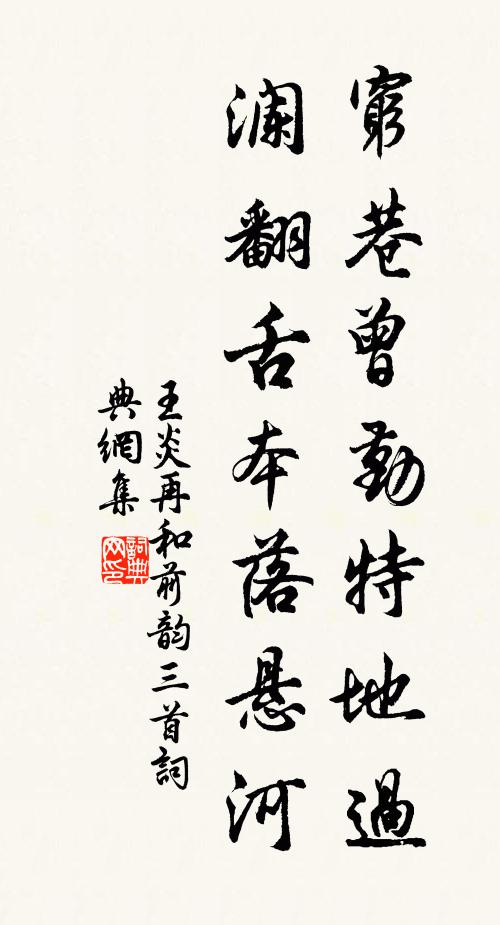 窮巷曾勤特地過
澜翻舌本落懸河
王炎再和前韵三首詞
典網集
詞典网印